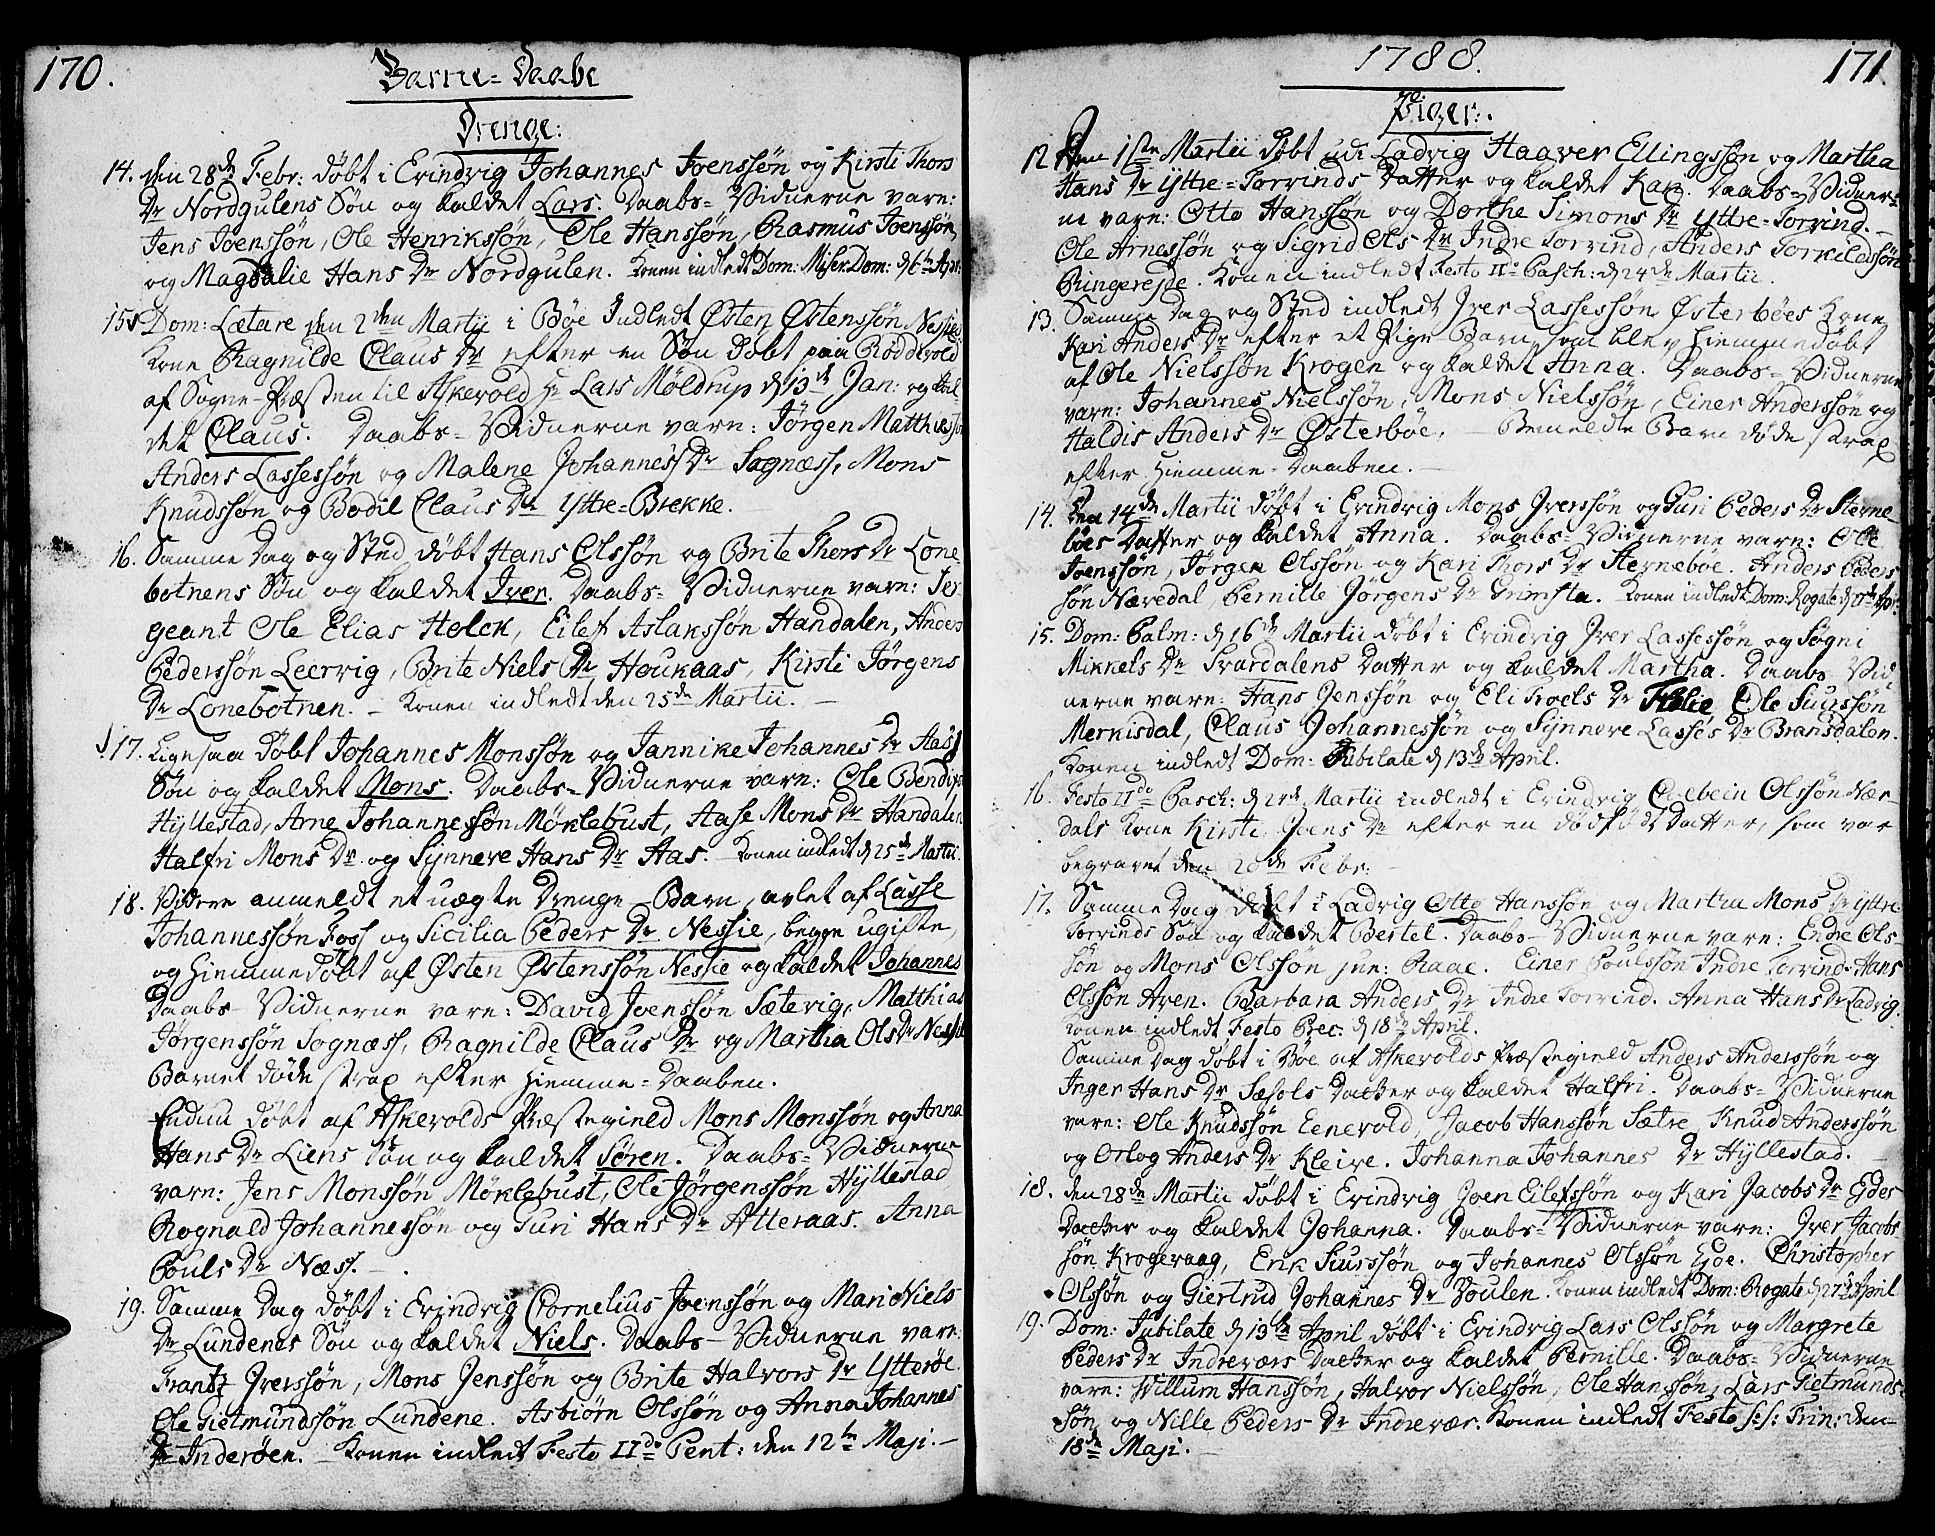 170.
Barne=Daabe
Drenge:
14. den 28de Febr: døbt i Evindvig Johannes Joenssøn og Kirsti Thors
Dr Nordgulens Søn og kaldet Lars. Daabs=Vidnerne vare:
Jens Joenssøn, Ole Henrikssøn, Ole Hanssøn, Rasmus Joenssøn,
og Magdalie Hans Dr Nordgulen. Konen indledt Dom: Miser. Dom: d 6te Apr:
15. Dom: Lætare den 2den Martij i Bøe Indledt Østen Østenssøn Nessies
Kone Ragnilde Claus Dr efter en Søn døbt paa Røddevold
af Sogne-Præsten til Askevold Hr Lars Møldrup d 13de Jan: og kal
det Claus. Daabs=Vidnerne vare: Jørgen Matthiessøn
Anders Lassessøn og Malene Johannes Dr Sognæss, Mons
Knudssøn og Bodil Claus Dr Yttre=Brekke.
16. Samme Dag og Sted døbt Hans Olssøn og Brite Thors Dr Lone-
botnens Søn og kaldet Iver. Daabs=Vidnerne vare: Ser
geant Ole Elias Holck, Eilef Aslakssøn Handalen, Anders
Pederssøn Leervig, Brite Niels Dr Houkaas, Kirsti Jørgens
Dr Lonebotnen. – Konen indledt den 25de Martii. –
17. Ligesaa døbt Johannes Monssøn og Jannike Johannes Dr Aas
Søn og kaldet Mons. Daabs=Vidnerne vare: Ole Bendixs
Hyllestad, Arne Johannessøn Møklebust, Aase Mons Dr Handalen
Halfri Mons Dr og Synneve Hans Dr Aas. – Konen indledt d 25de Martii.
18. Videre anmeldt et uægte Drenge-Barn, avlet af Lasse
Johannessøn Foss og Sicilia Peders Dr Nessie, begge ugifte,
og hiemmedøbt af Østen Østenssøn Nessie og kaldet Johannes
Daabs-Vidnerne vare: David Joenssøn Sætevig, Matthias
Jørgenssøn Sognæss, Ragnilde Claus Dr og Martha Ols Dr Nessie
Barnet døde strax efter Hiemme=Daaben.
Endnu døbt af Askevolds Præstegield Mons Monssøn og Anna
Hans Dr Liens Søn og kaldet Søren. Daabs=Vidnerne
vare: Jens Monssøn Møklebust, Ole Jørgenssøn Hyllestad
Rognald Johannessøn og Guri Hans Dr Atteraas. Anna
Pouls Dr Næss. –
19. Samme Dag døbt i Evindvig Cornelius Joenssøn og Mari Niels
Dr Lundenes Søn og kaldet Niels. Daabs-Vidnerne vare:
Frantz Iverssøn, Mons Jenssøn og Brite Halvors Dr Ytterøe.
Ole Gietmundssøn Lundene. Asbiørn Olssøn og Anna Johannes
Dr Inderøen. – Konen indledt Festo IIdo Pent: den 12te Maji. –
1788.
171.
Piger:
12. Den 1ste Martii døbt udi Ladvig Haaver Ellingssøn og Martha
Hans Dr Yttre=Torvinds Datter og kaldet Kari. Daabs=Vidner-
ne vare: Otto Hanssøn og Dorthe Simons Dr Yttre-Torving. –
Ole Arnessøn og Sigrid Ols Dr Indre Torvind, Anders Torkildssøn
Ringereide. Konen indledt Festo IIdo Pasch: d 24de Martii.
13. Samme Dag og Sted indledt Iver Lassessøn Østerbøes Kone
Kari Anders Dr efter et Pige Barn, som blev hiemmedøbt
af Ole Nielssøn Krogen og kaldet Anna. Daabs=Vidnerne
vare: Johannes Nielssøn, Mons Nielssøn, Einer Anderssøn og
Haldis Anders Dr Østerbøe. – Bemeldte Barn døde strax
efter Hiemme-Daaben. –
14. Den 14de Martii døbt i Evindvig Mons Iverssøn og Guri Peders Dr Sterne-
bøes Datter og kaldet Anna. Daabs=Vidnerne vare: Ole
Joenssøn, Jørgen Olssøn og Kari Thors Dr Sternebøe. Anders Peders
søn Nævedal, Pernille Jørgens Dr Grimsta. Konen indledt Dom: Rogate d 27de Apr:
15. Dom: Palm: d 16de Martii døbt i Evindvig Iver Lassessøn og Søgni
Mikkels Dr Svardalens Datter og kaldet Martha. Daabs Vid-
nerne vare: Hans Jenssøn og Eli Troels Dr Ole Siurssøn
Merkisdal, Claus Johannessøn og Synneve Lasses Dr Bransdalen.
Konen indledt Dom: Jubilate d 13de April.
16. Festo IIdo Pasch: d 24de Martii indledt i Evindvig Colbein Olssøn Nær-
dals Kone Kirsti Joens Dr efter en dødfødt Datter, som var
begravet den 20de Febr: –
17. Samme Dag døbt i Ladvig Otto Hanssøn og Martha Mons Dr Yttre
Torvinds Søn og kaldet Bertel. Daabs-Vidnerne vare: Endre Ols-
søn og Mons Olssøn jun: Raae. Einer Poulssøn Indre Torvind. Hans
Olssøn Aven. Barbara Anders Dr Indre Torvind. Anna Hans Dr Ladvig.
Konen indledt Festo Prec: d 18de April.
Samme Dag døbt i Bøe af Askevolds Præstegield Anders Anderssøn og
Inger Hans Dr Sæsols Datter og kaldet Halfri. Daabs=Vidnerne
vare: Ole Knudssøn Eenevold, Jacob Hanssøn Sætre, Knud Anderssøn
og Orlog Anders Dr Kleive. Johanna Johannes Dr Hyllestad.
18. den 28de Martii døbt i Evindvig Joen Eilefssøn og Kari Jacobs Dr Eides
Datter og kaldet Johanna. Daabs=Vidnerne vare: Iver Jacobs
søn Krogeraag, Erik Siurssøn og Johannes Olssøn Eide. Christopher
Olssøn og Giertrud Johannes Dr Zoulen. Konen indledt Dom: Rogate d 27de April
19. Dom: Jubilate d 13de April døbt i Evindvig Lars Olssøn og Margrete
Peders Dr Indreværs Datter og kaldet Pernille. Daabs=Vidnerne
vare: Willum Hanssøn, Halvor Nielssøn, Ole Hanssøn, Lars Gietmunds-
søn og Nille Peders Dr Indrevær. Konen indledt Festo S:s: Trin: den
18de Maji. –